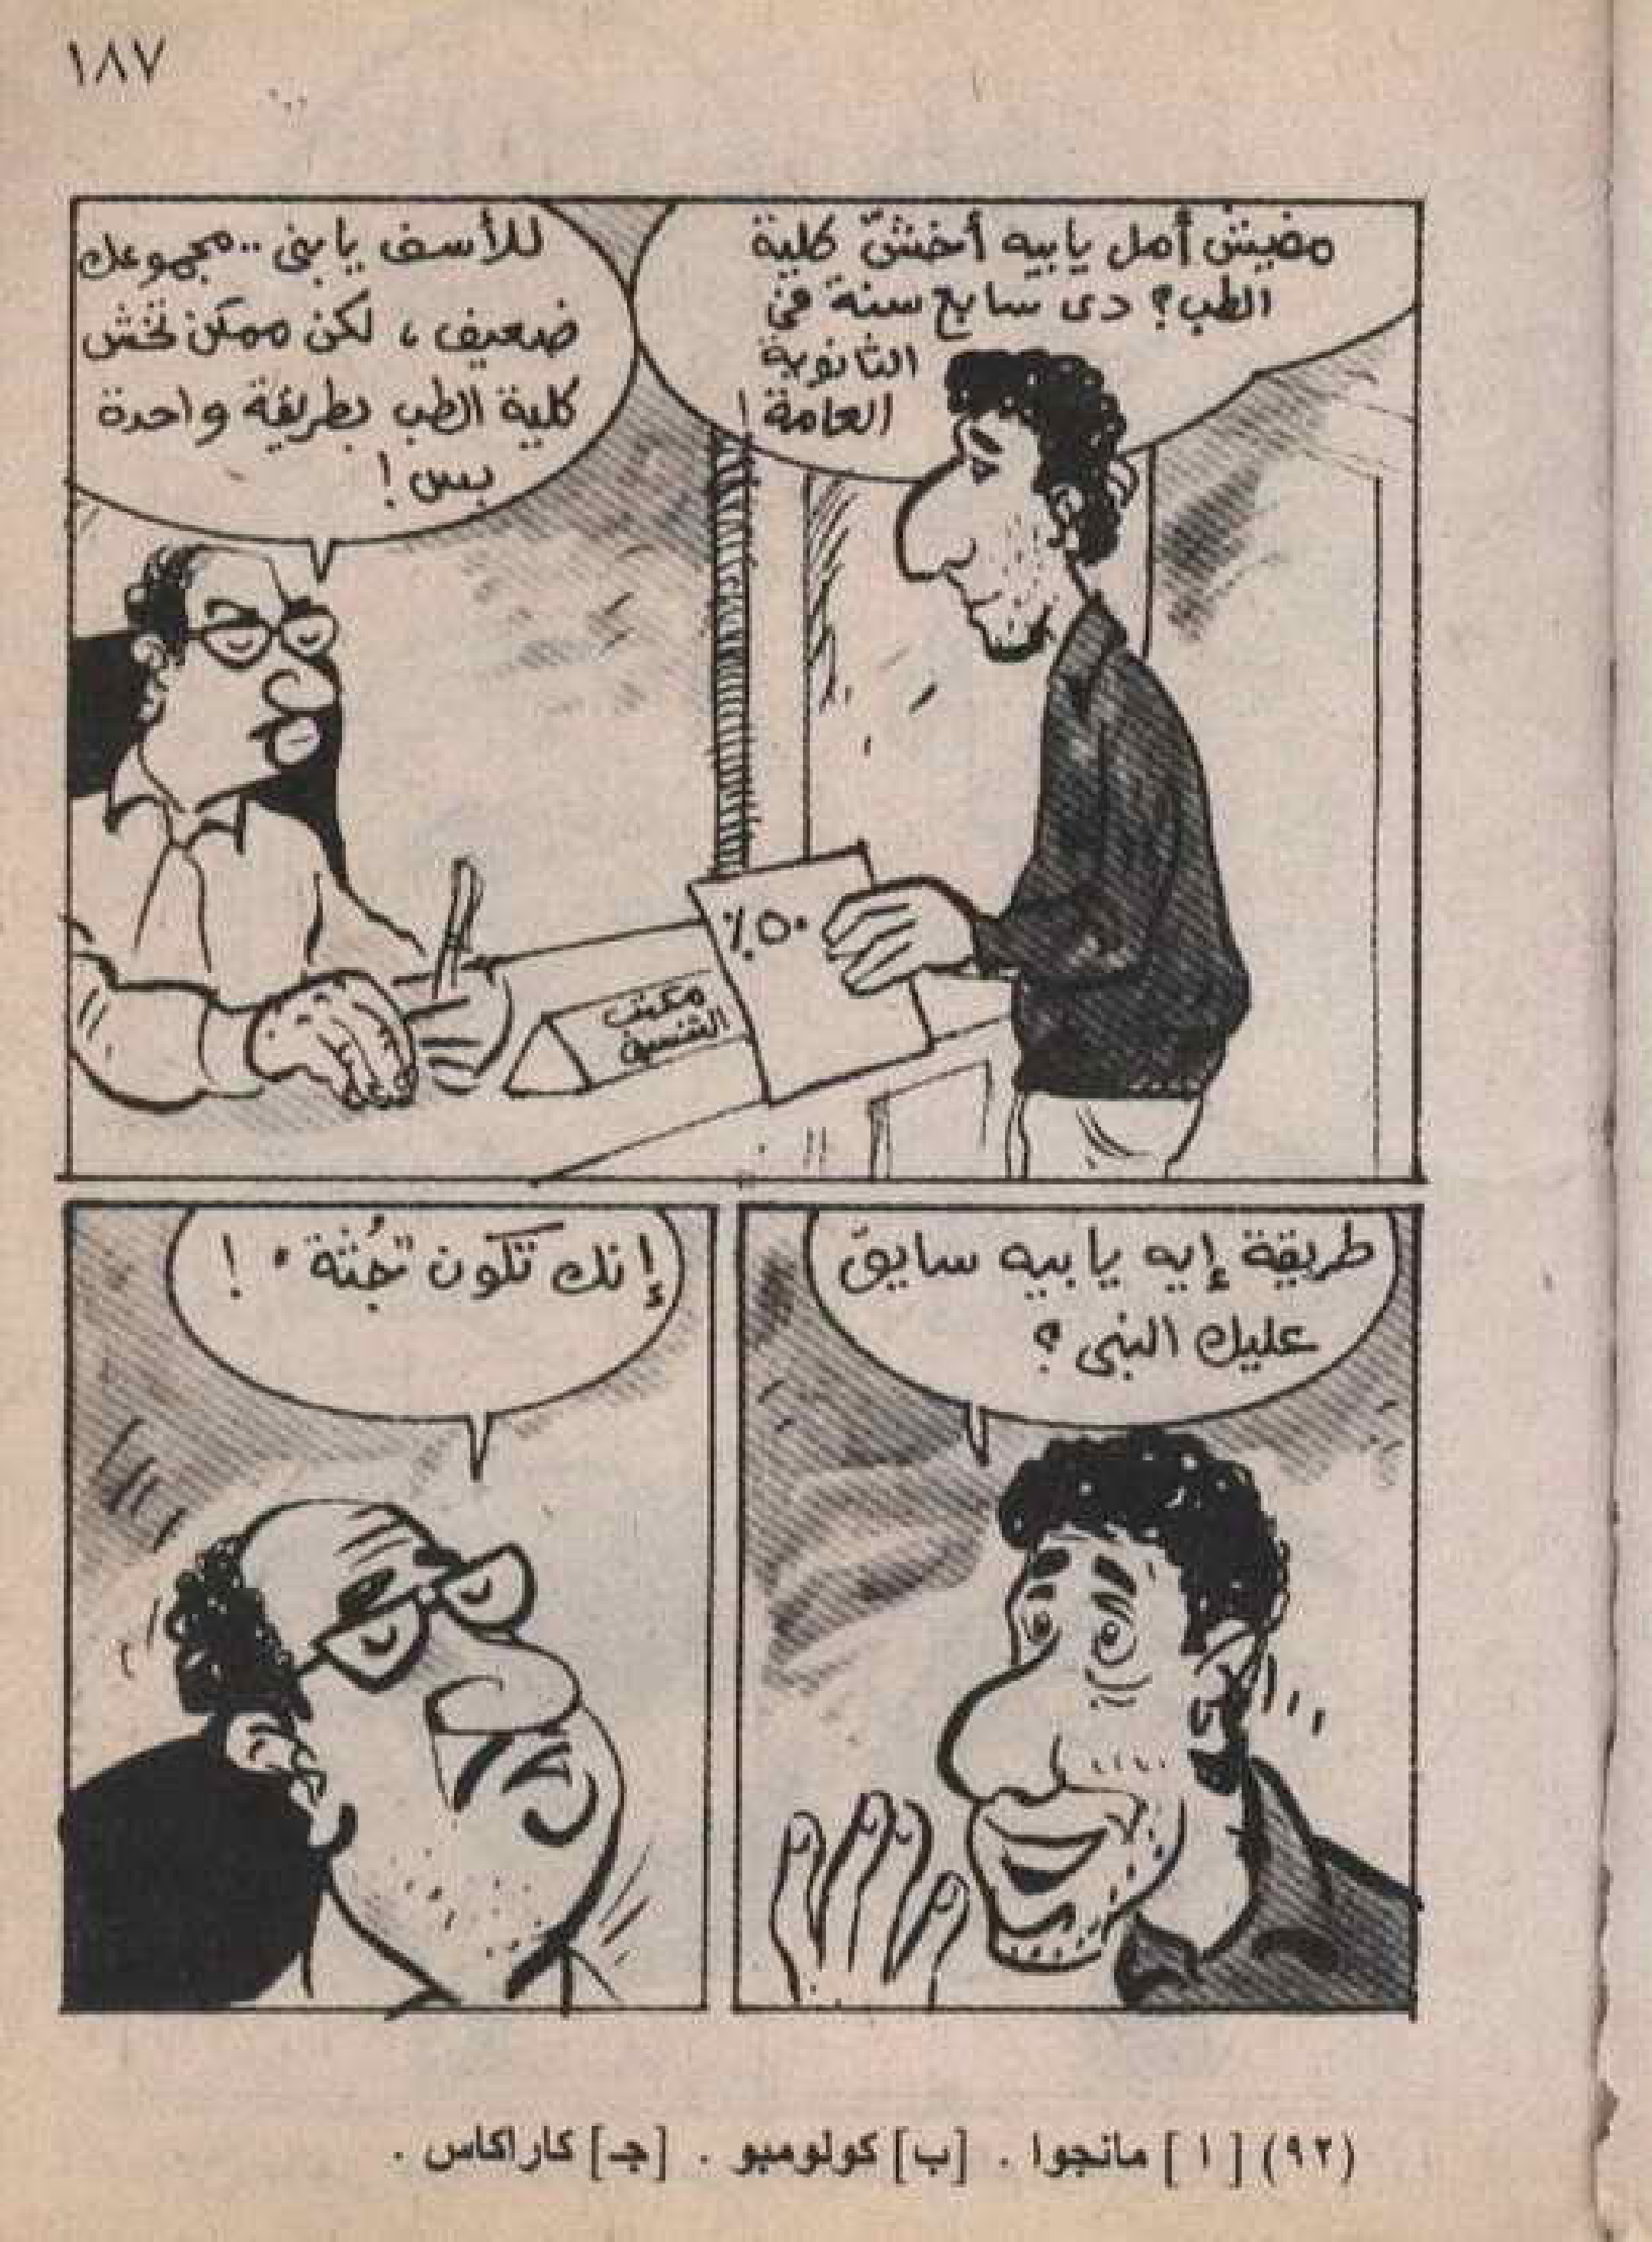 ١٨٧
مفيش أمل يا بيه أخشّ كلية
الطب؟ دى سابع سنة فى
الثانوية
العامة!
للأسف يا بنى .. مجموعك
ضعيف، لكن ممكن تخش
كلية الطب بطريقة واحدة
بس!
٥٠٪
مكتب
التنسيق
طريقة إيه يا بيه سايق
عليك النبى؟
إنك تكون "جُثة"!
(٩٢) [أ] مانجوا. [ب] كولومبو. [جـ] كاراكاس.